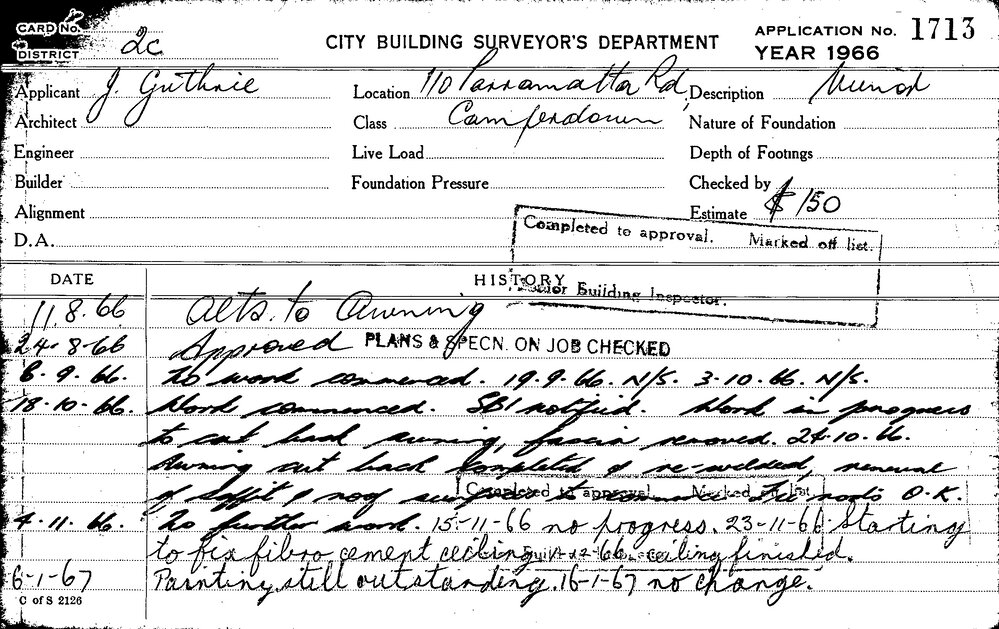 CARD No.
DISTRICT 2c
CITY BUILDING SURVEYOR'S DEPARTMENT
APPLICATION No. 1713
YEAR 1966
Applicant J. Guthrie
Location 110 Parramatta Rd,
Description Minor
Architect
Class Camperdown
Nature of Foundation
Engineer
Live Load
Depth of Footings
Builder
Foundation Pressure
Checked by
Alignment
Estimate $150
D.A.
Completed to approval. Marked off list.
Building Inspector.
DATE HISTORY
11.8.66 Alts. to Awning
24-8-66 Approved PLANS & SPECN. ON JOB CHECKED
6.9.66. No work commenced. 19.9.66. N/S. 3-10.66. N/S.
18.10.66. Work commenced. SBI notified. Work in progress
to cut back awning, fascia removed. 24.10.66.
Awning cut back completed & re-welded, renewal
of soffit & roof O.K.
Completed to approval. Marked off list
4.11.66. No further work. 15-11-66 no progress. 23-11-66 Starting
to fix fibro cement ceiling. 66. ceiling finished.
6-1-67 Painting still outstanding. 16-1-67 no change.
C of S 2126